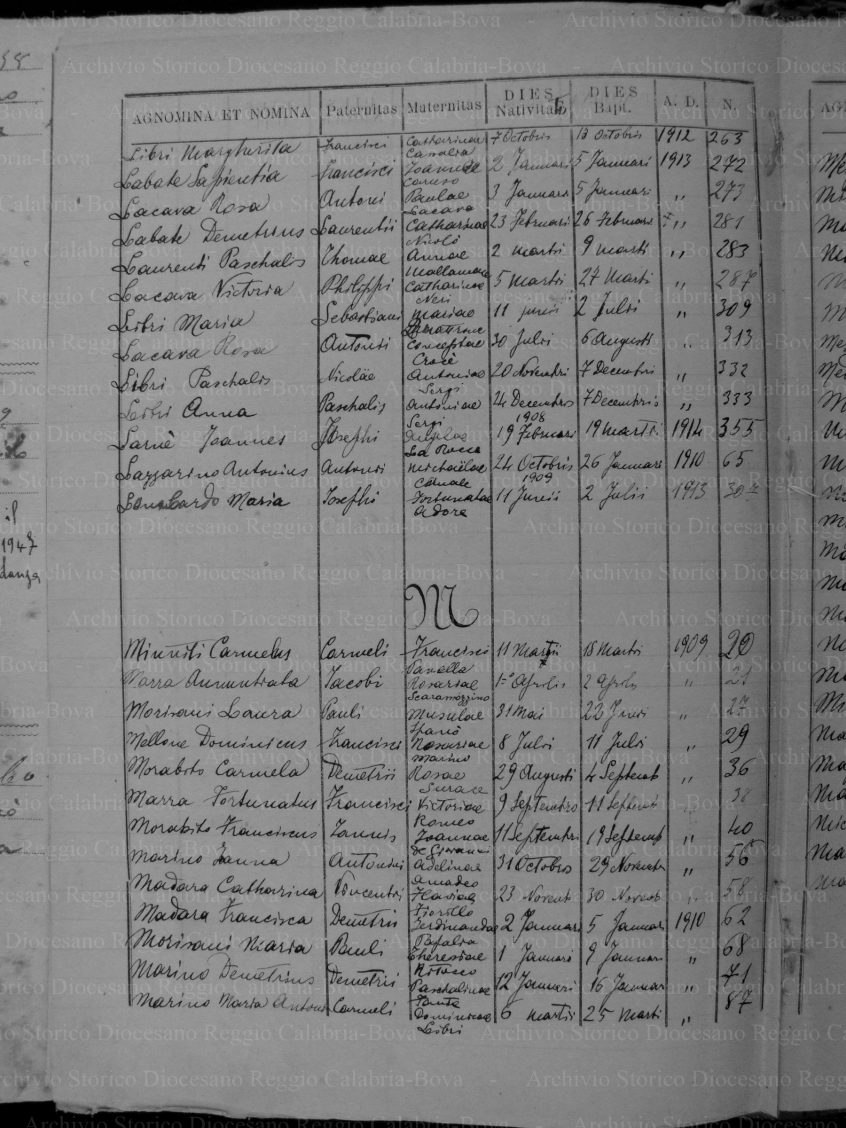 AGNOMINA ET NOMINA Paternitas Maternitas DIES Nativitatis DIES Bapt. A. D. N.
Libri Margherita Francisci Catharinae 7 Octobris 13 Octobris 1912 263
Labate Sapientia Francisci Joannae 2 Januari 5 Januari 1913 272
Caruso
Lacava Rosa Antoni Paulae 3 Januari 5 Januari ,, 273
Lacava
Labate Demetrius Laurentii Catharinae 23 Februari 26 Februari ,, 281
Nicolò
Laurenti Paschalis Thomae Annae 2 Marti 9 Marti ,, 283
Mallamace
Lacava Victoria Philippi Catharinae 5 Marti 27 Marti ,, 287
Neri
Libri Maria Sebastiani Mariae 11 Junii 2 Julii ,, 309
Lacava Rosa Antonii Conceptae 30 Julii 6 Augusti ,, 313
Crocè
Libri Paschalis Nicolae Antoniae 20 Novembri 7 Decembri ,, 332
Sergi
Libri Anna Paschalis Antoniae 24 Decembris 7 Decembris ,, 333
Sergi 1908
Larnè Joannes Josephi 19 Februari 19 Marti 1914 355
La Rocca
Lazzarino Antonius Antonii Michaelae 24 Octobris 26 Januari 1910 65
Canale 1909
Lombardo Maria Josephi Fortunatae 11 Junii 2 Julii 1913 307
Adora
M
Minniti Carmelus Carmeli Francisci 11 Martii 18 Marti 1909 20
Panella
Marra Annuntiata Jacobi Rosariae 1° Aprilis 2 Aprilis ,, 21
Scaramozzino
Morisani Laura Pauli 31 Mai 22 Juni ,, 27
Spanò
Mellone Dominicus Francisci Rosariae 8 Julii 11 Julii ,, 29
Marino
Morabito Carmela Demetrii Rosae 29 Augusti 4 Septemb ,, 36
Surace
Marra Fortunatus Francisci Victoriae 9 Septembris 11 Septemb ,, 38
Romeo
Morabito Franciscus Joannis Joannae 11 Septembri 19 Septemb ,, 40
De Giovanni
Marino Joanna Antonini Adelinae 31 Octobris 29 Novembri ,, 56
Amadeo
Madara Catharina Vincentii Flaviae 23 Novemb 30 Novemb ,, 58
Fiorillo
Madara Francisca Demetrii Ferdinandae 2 Januari 5 Januari 1910 62
Morisani Maria Pauli Theresiae 1 Januari 9 Januari ,, 68
Marino Demetrius Demetrii Paschalinae 12 Januari 16 Januari ,, 71
Marino Maria Carmeli Dominicae 6 Martii 25 Marti ,, 87
Libri